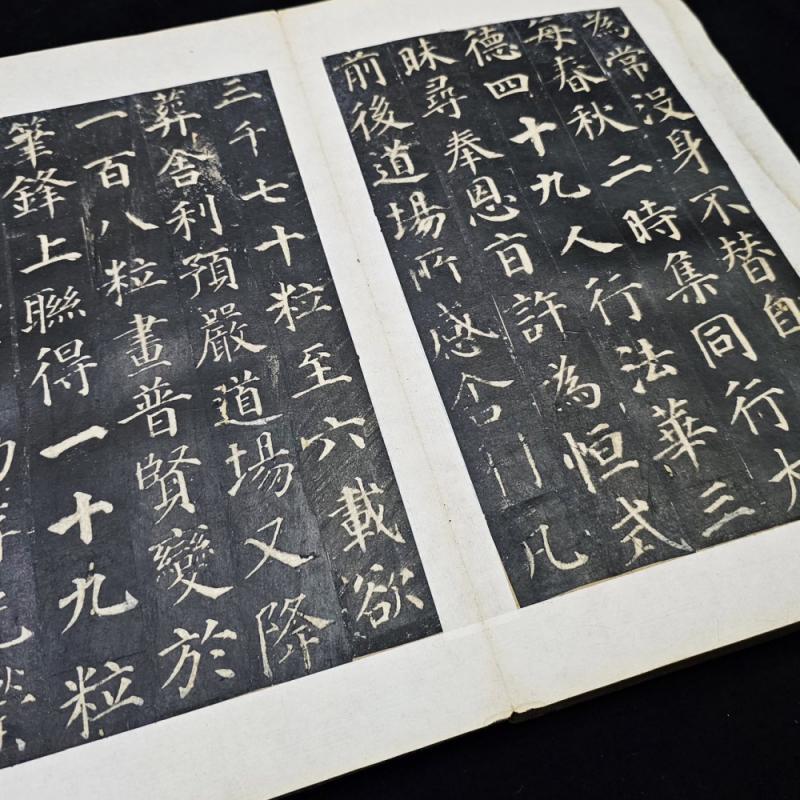 為常没身不替自
每春秋二時集同行大
德四十九人行法華三
昧尋奉恩旨許為恒式
前後道場所感舍利凡
三千七十粒至六載欲
葬舍利預嚴道場又降
一百八粒畫普賢變於
筆鋒上聯得一十九粒